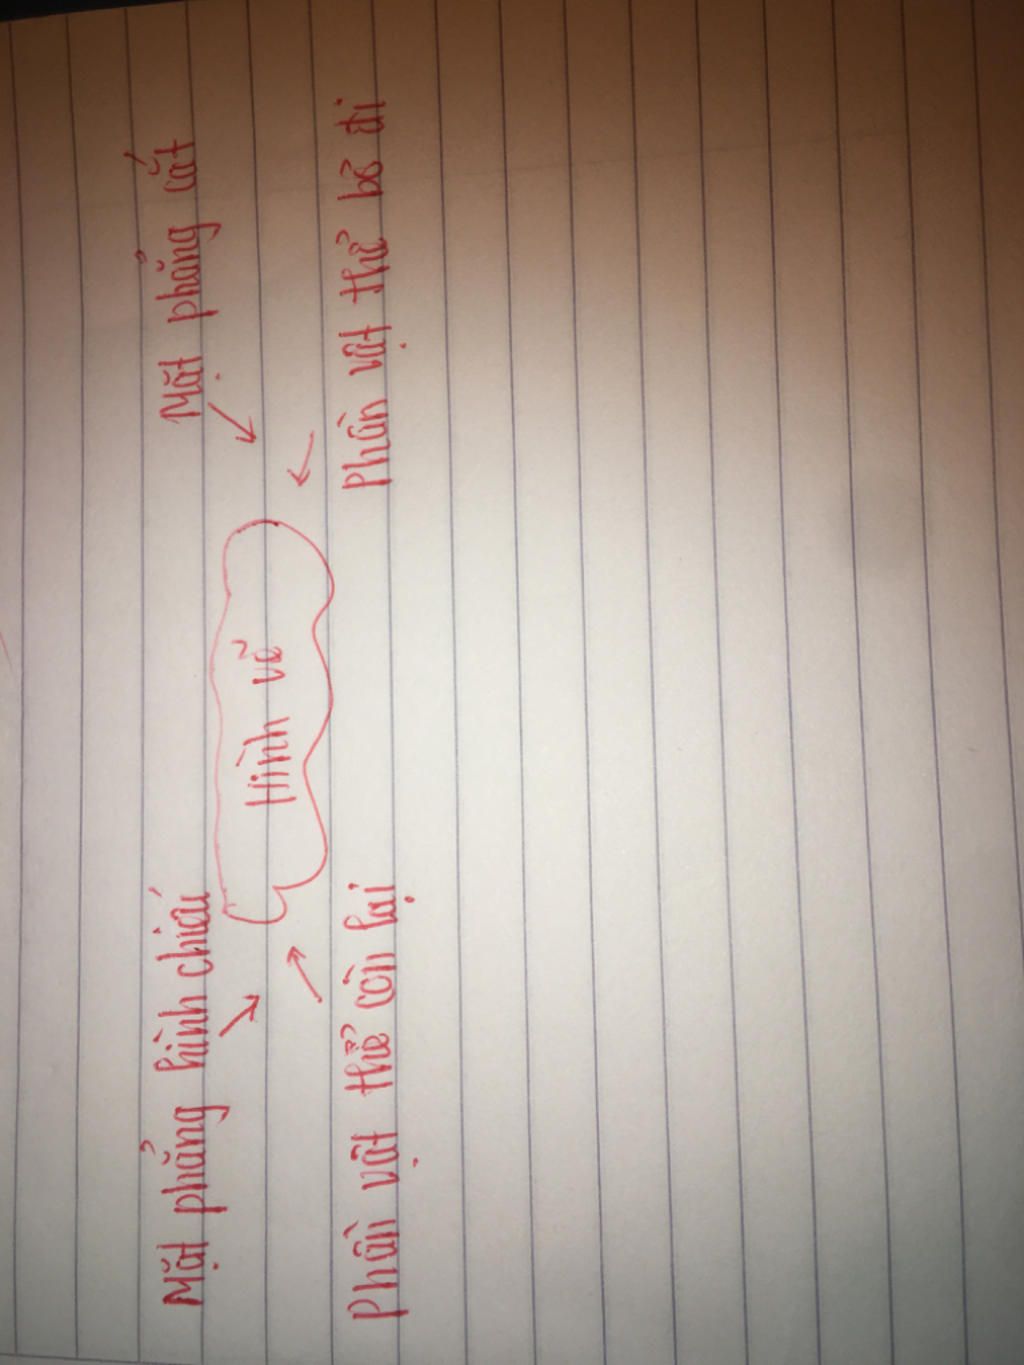 Mặt phẳng hình chiếu
Mặt phẳng cắt
Hình vẽ
Phần vật thể còn lại
Phần vật thể bỏ đi